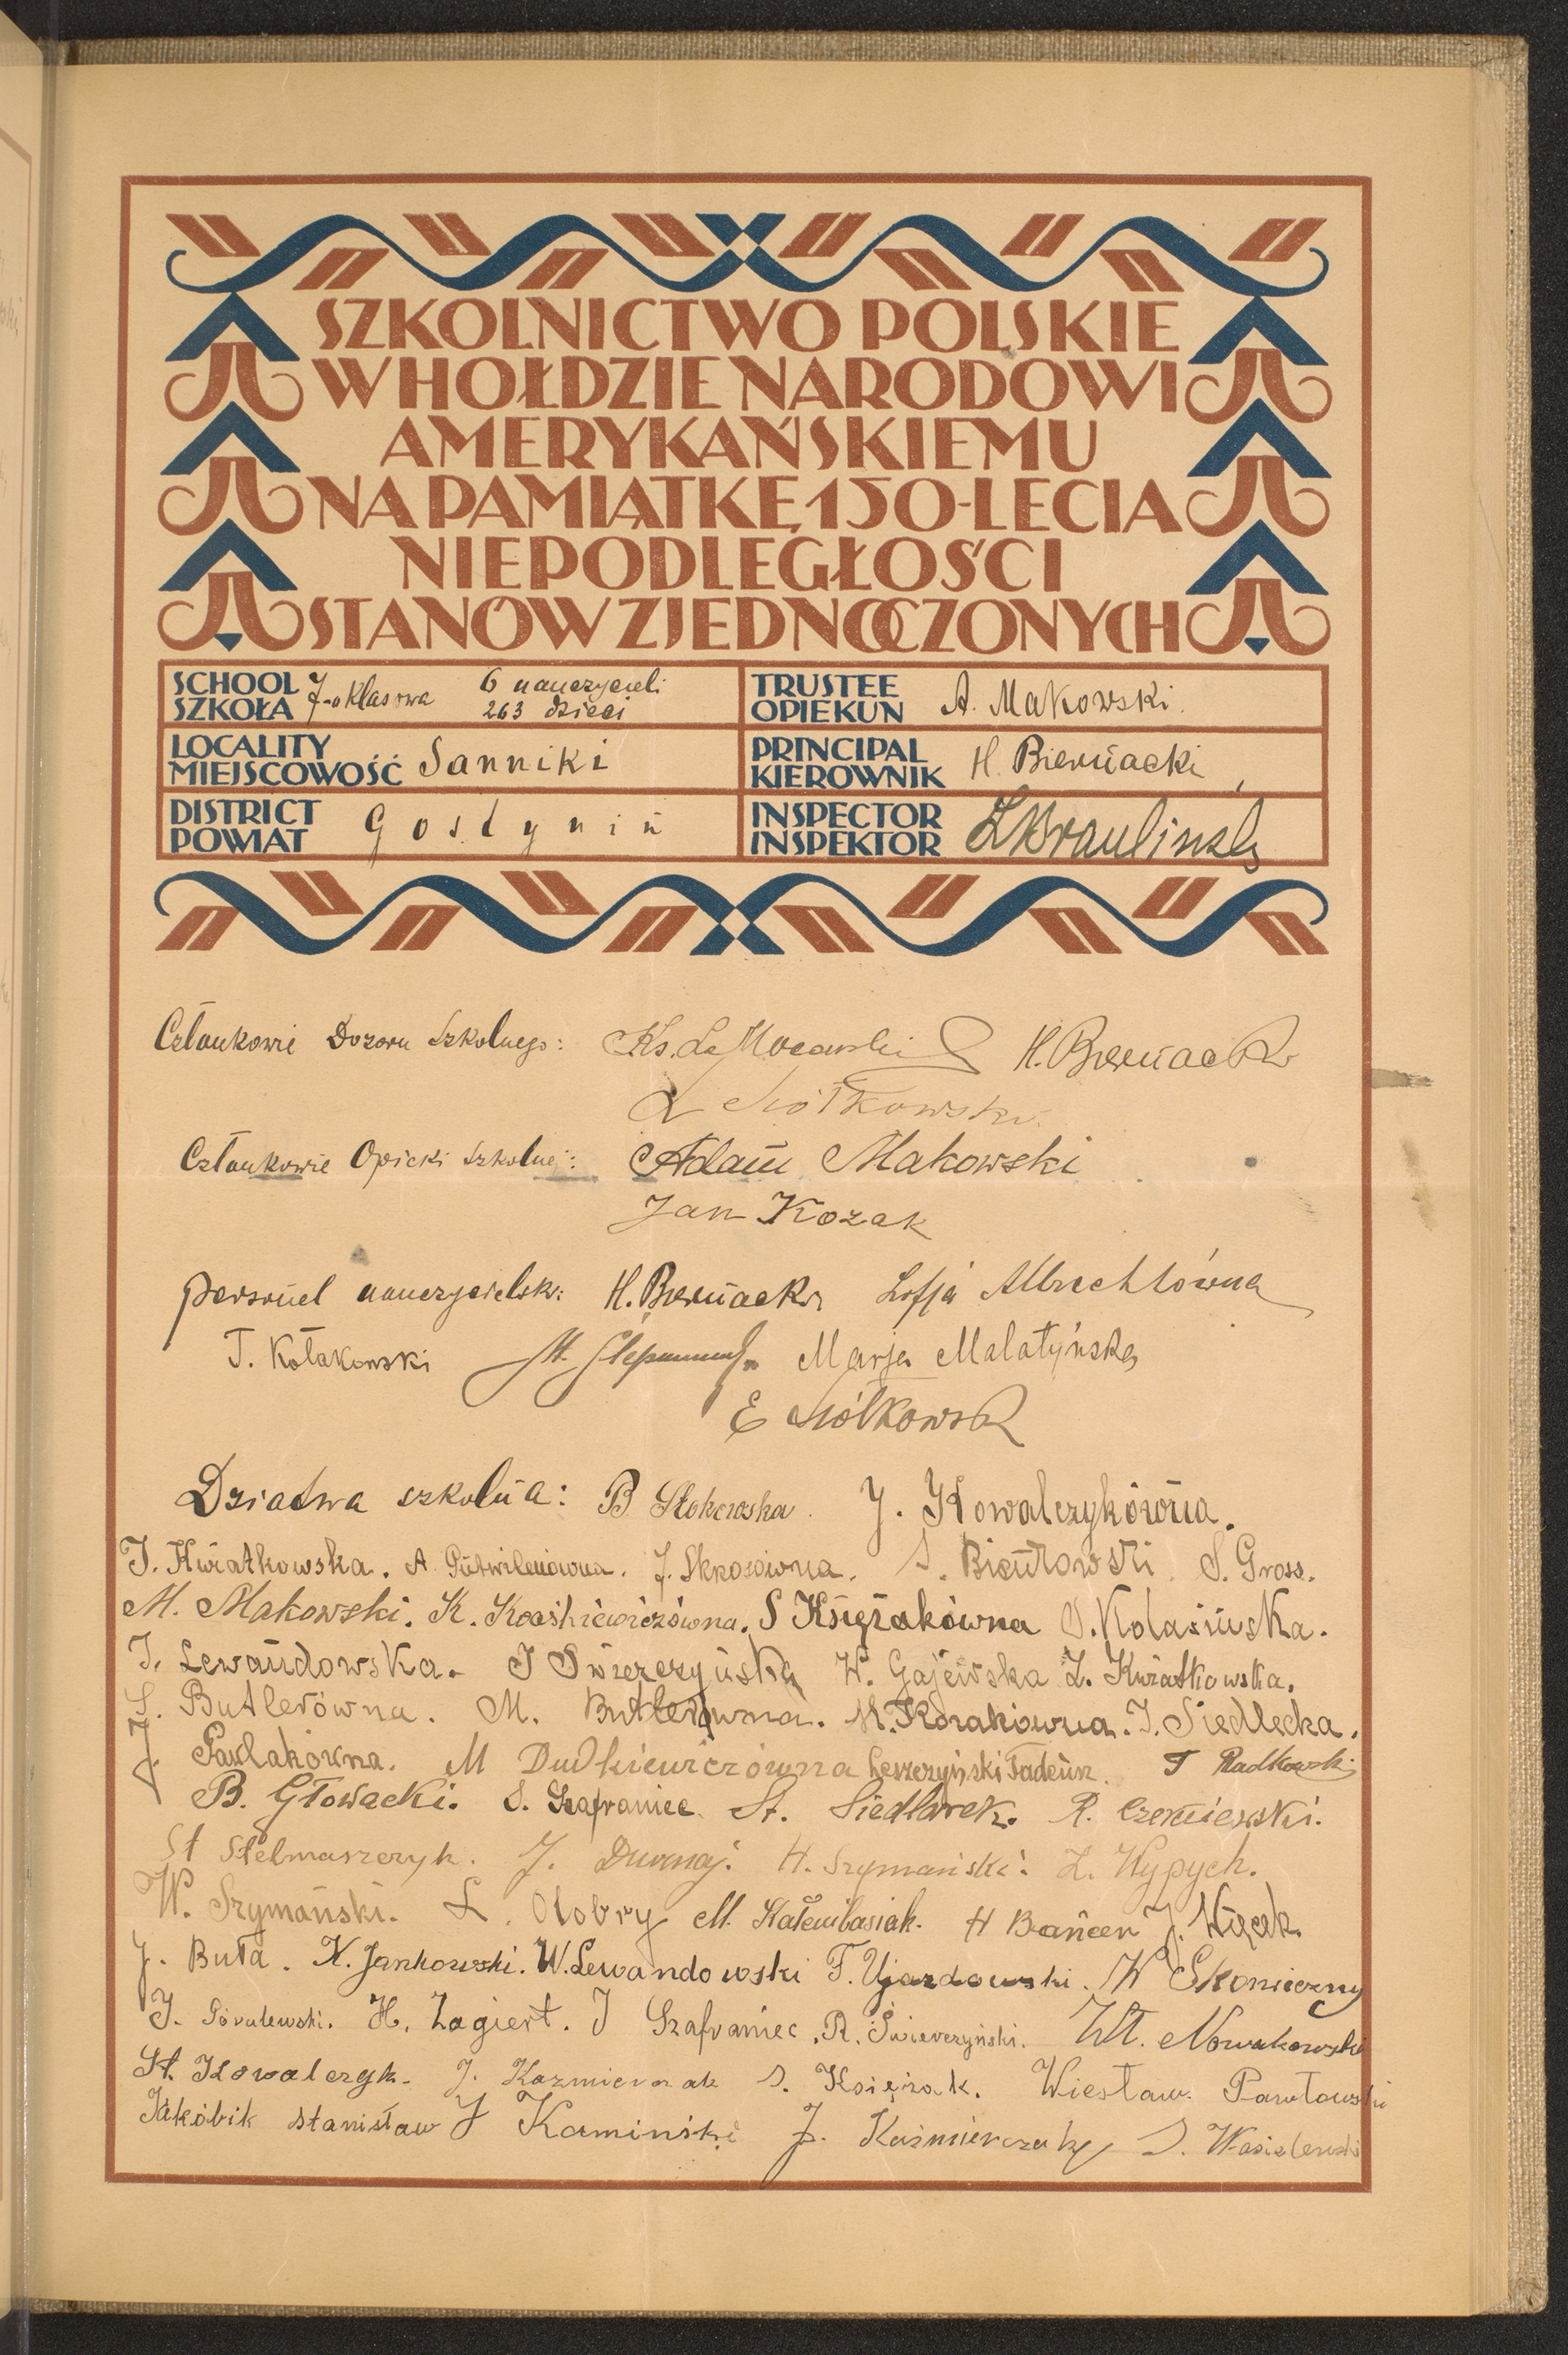 SZKOLNICTWO POLSKIE
W HOŁDZIE NARODOWI
AMERYKAŃSKIEMU
NA PAMIĄTKĘ 150-LECIA
NIEPODLEGŁOŚCI
STANÓW ZJEDNOCZONYCH
SCHOOL SZKOŁA 7-o klasowa 6 nauczycieli 263 dzieci
TRUSTEE OPIEKUN A. Makowski.
LOCALITY MIEJSCOWOŚĆ Sanniki
PRINCIPAL KIEROWNIK H. Biernacki
DISTRICT POWIAT Gostynin
INSPECTOR INSPEKTOR
Członkowie Dozoru Szkolnego: Ks. H. Biernacki
Siółkowski
Członkowie Opieki Szkolnej: Adam Makowski
Jan Kozak
Personel nauczycielski: H. Biernacki Zofja Albrechtówna
T. Kołakowski Marja Malatyńska
E Siółkowska
Dziatwa szkolna: B Stokowska. J. Kowalczykówna.
J. Kwiatkowska. A. J. S. S. Gross.
M. Makowski. K. S Księżakówna S. Kolasińska.
J. Lewandowska. J Swierczyńska W. Gajewska Z. Kwiatkowska.
S. Butlerówna. M. Butlerówna. M. Kozakówna. J. Siedlecka.
J. Pawlakówna. M Dudkiewiczówna Leszczyński Tadeusz. T Radkowski
B. Głowacki. S. Szafraniec. St. Siedlarek. R. Czerniewski.
St Stelmaszczyk. J. Dunaj. H. Szymański. Z. Wypych.
W. Szymański. L. Olobry M. Kałembasiak. H J. Więcek.
J. Buta. K. Jankowski. W. Lewandowski F. Ujazdowski. W Skonieczny
J. Góralewski. H. Zagiert. J Szafraniec. R. Świerczyński. Wł. Nowakowski
St. Kowalczyk. J. Kazmierczak S. Księżak. Wiesław Pawłowski
Jakóbik Stanisław J Kamiński J. Kaźmierczak S. Wasielewski